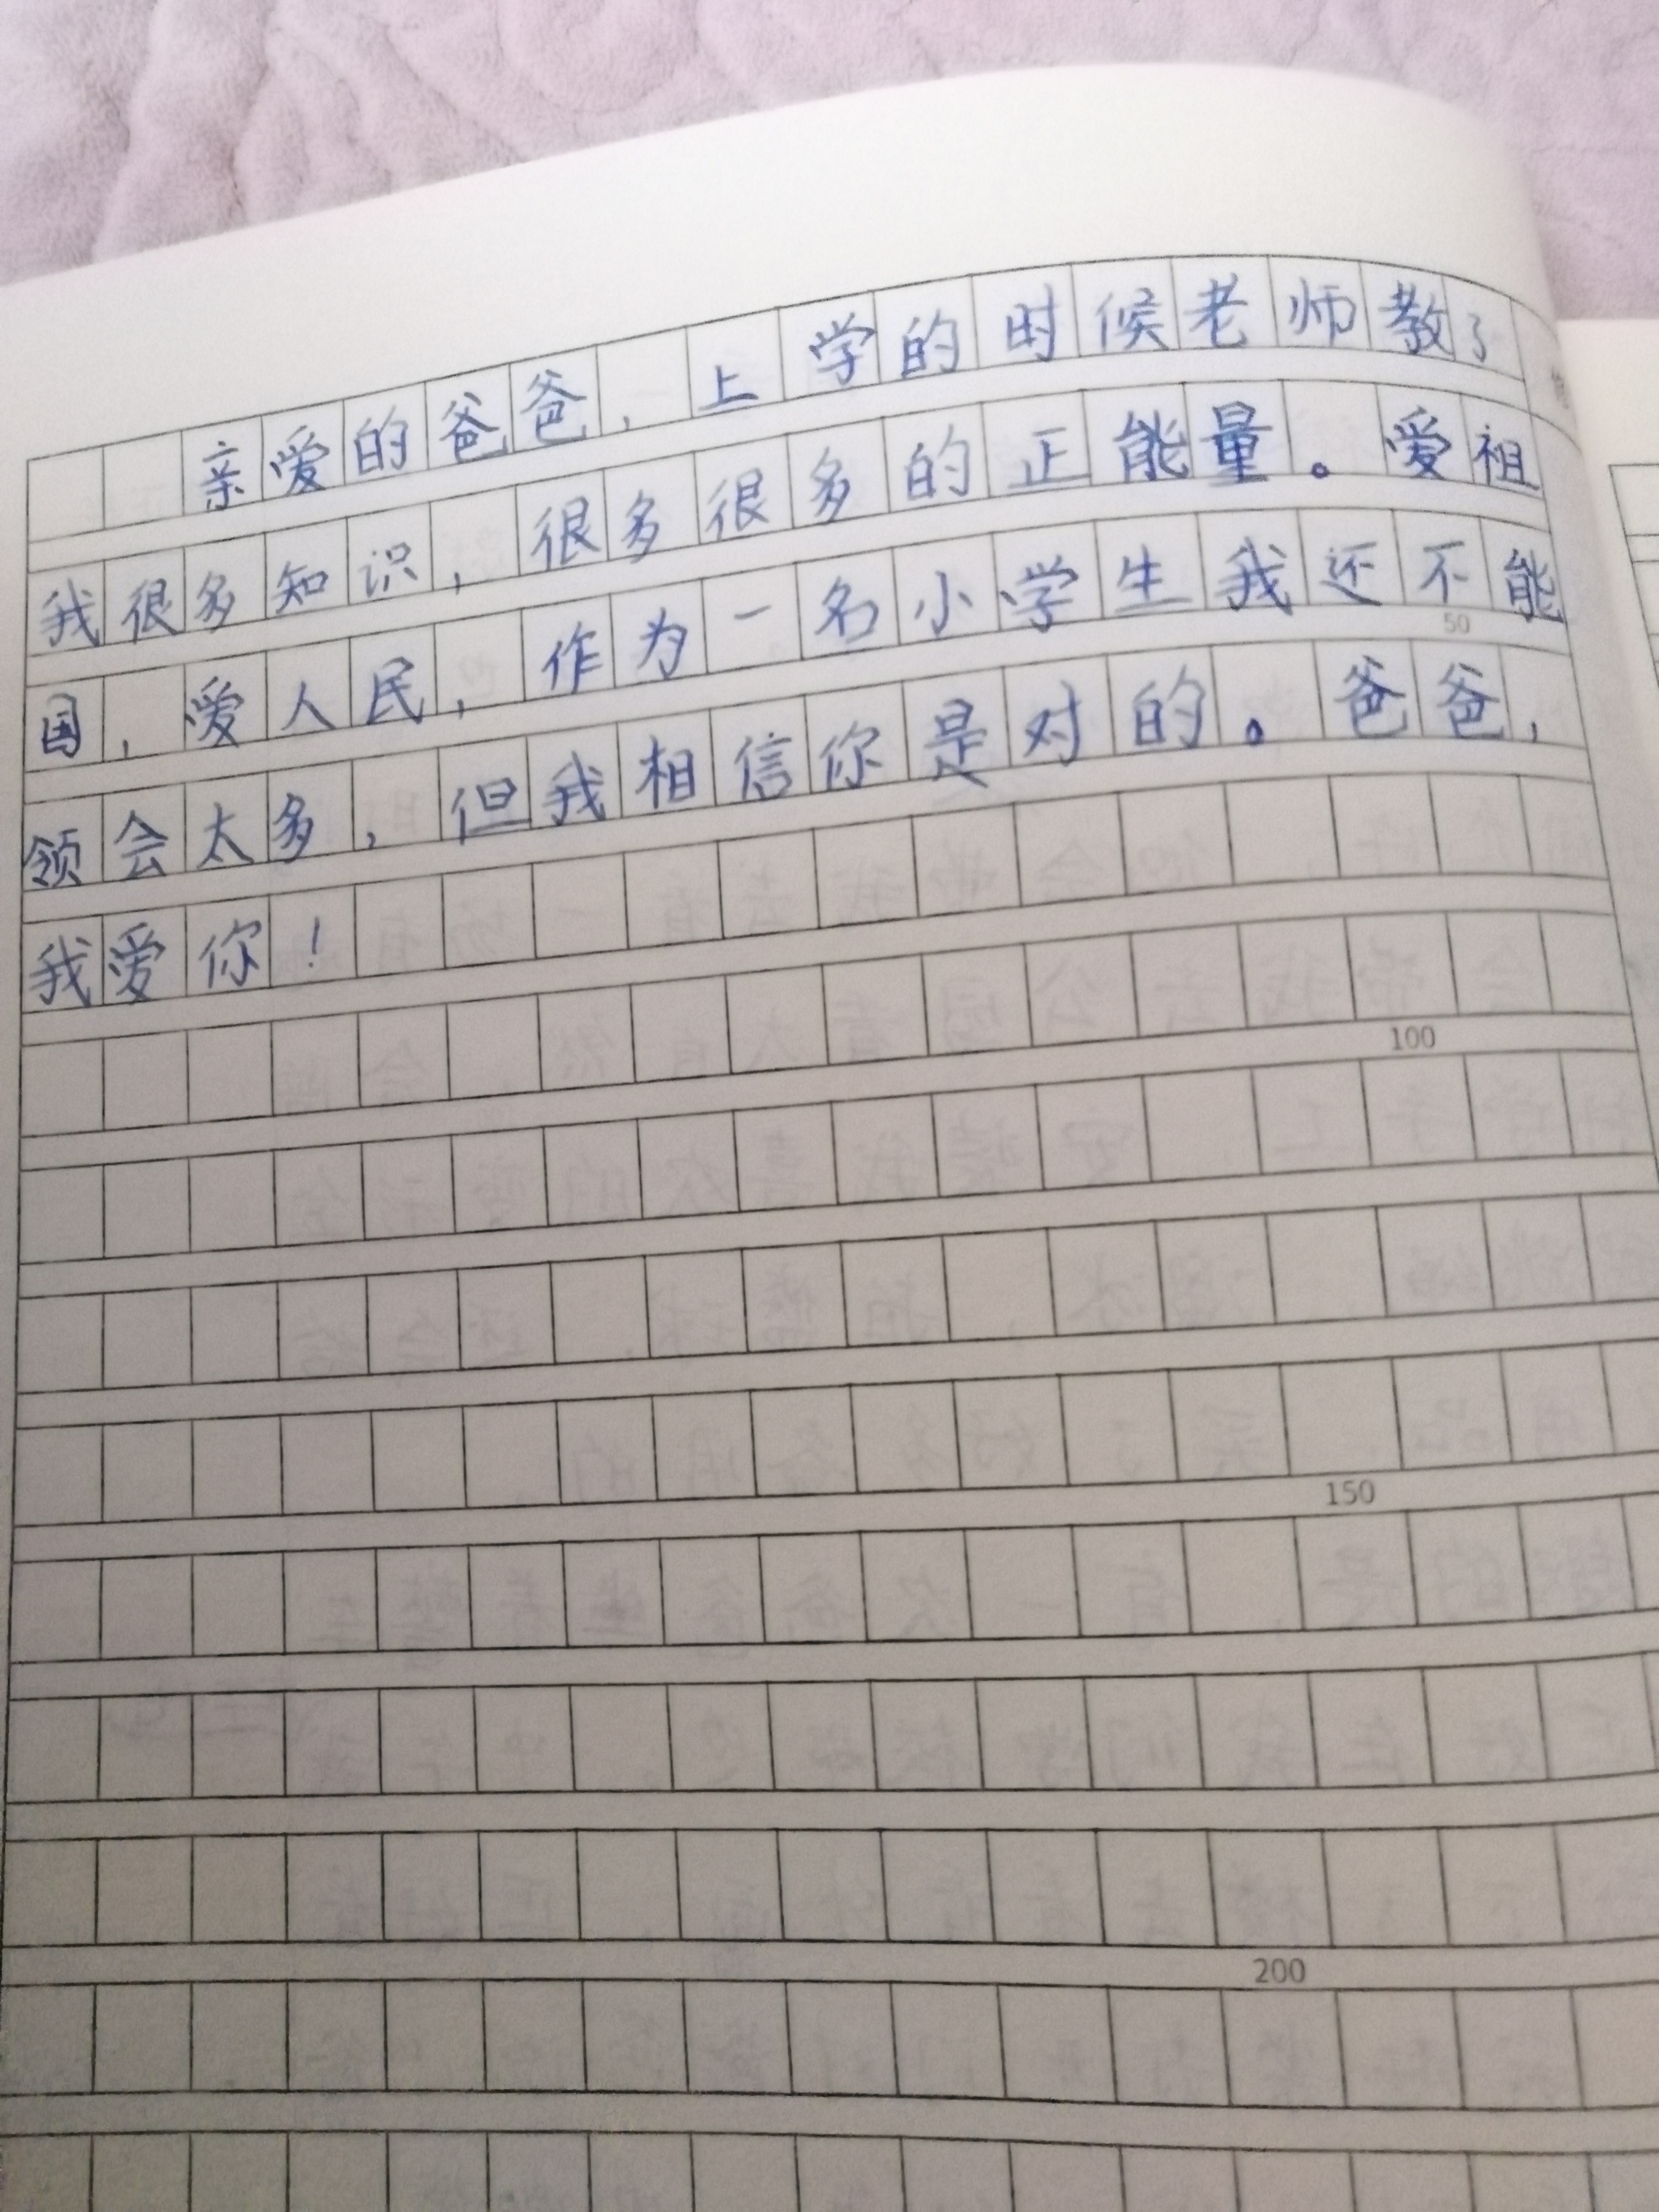 亲爱的爸爸，上学的时候老师教了
我很多知识，很多很多的正能量。爱祖
国，爱人民，作为一名小学生我还不能
50
领会太多，但我相信你是对的。爸爸，
我爱你！
100
150
200